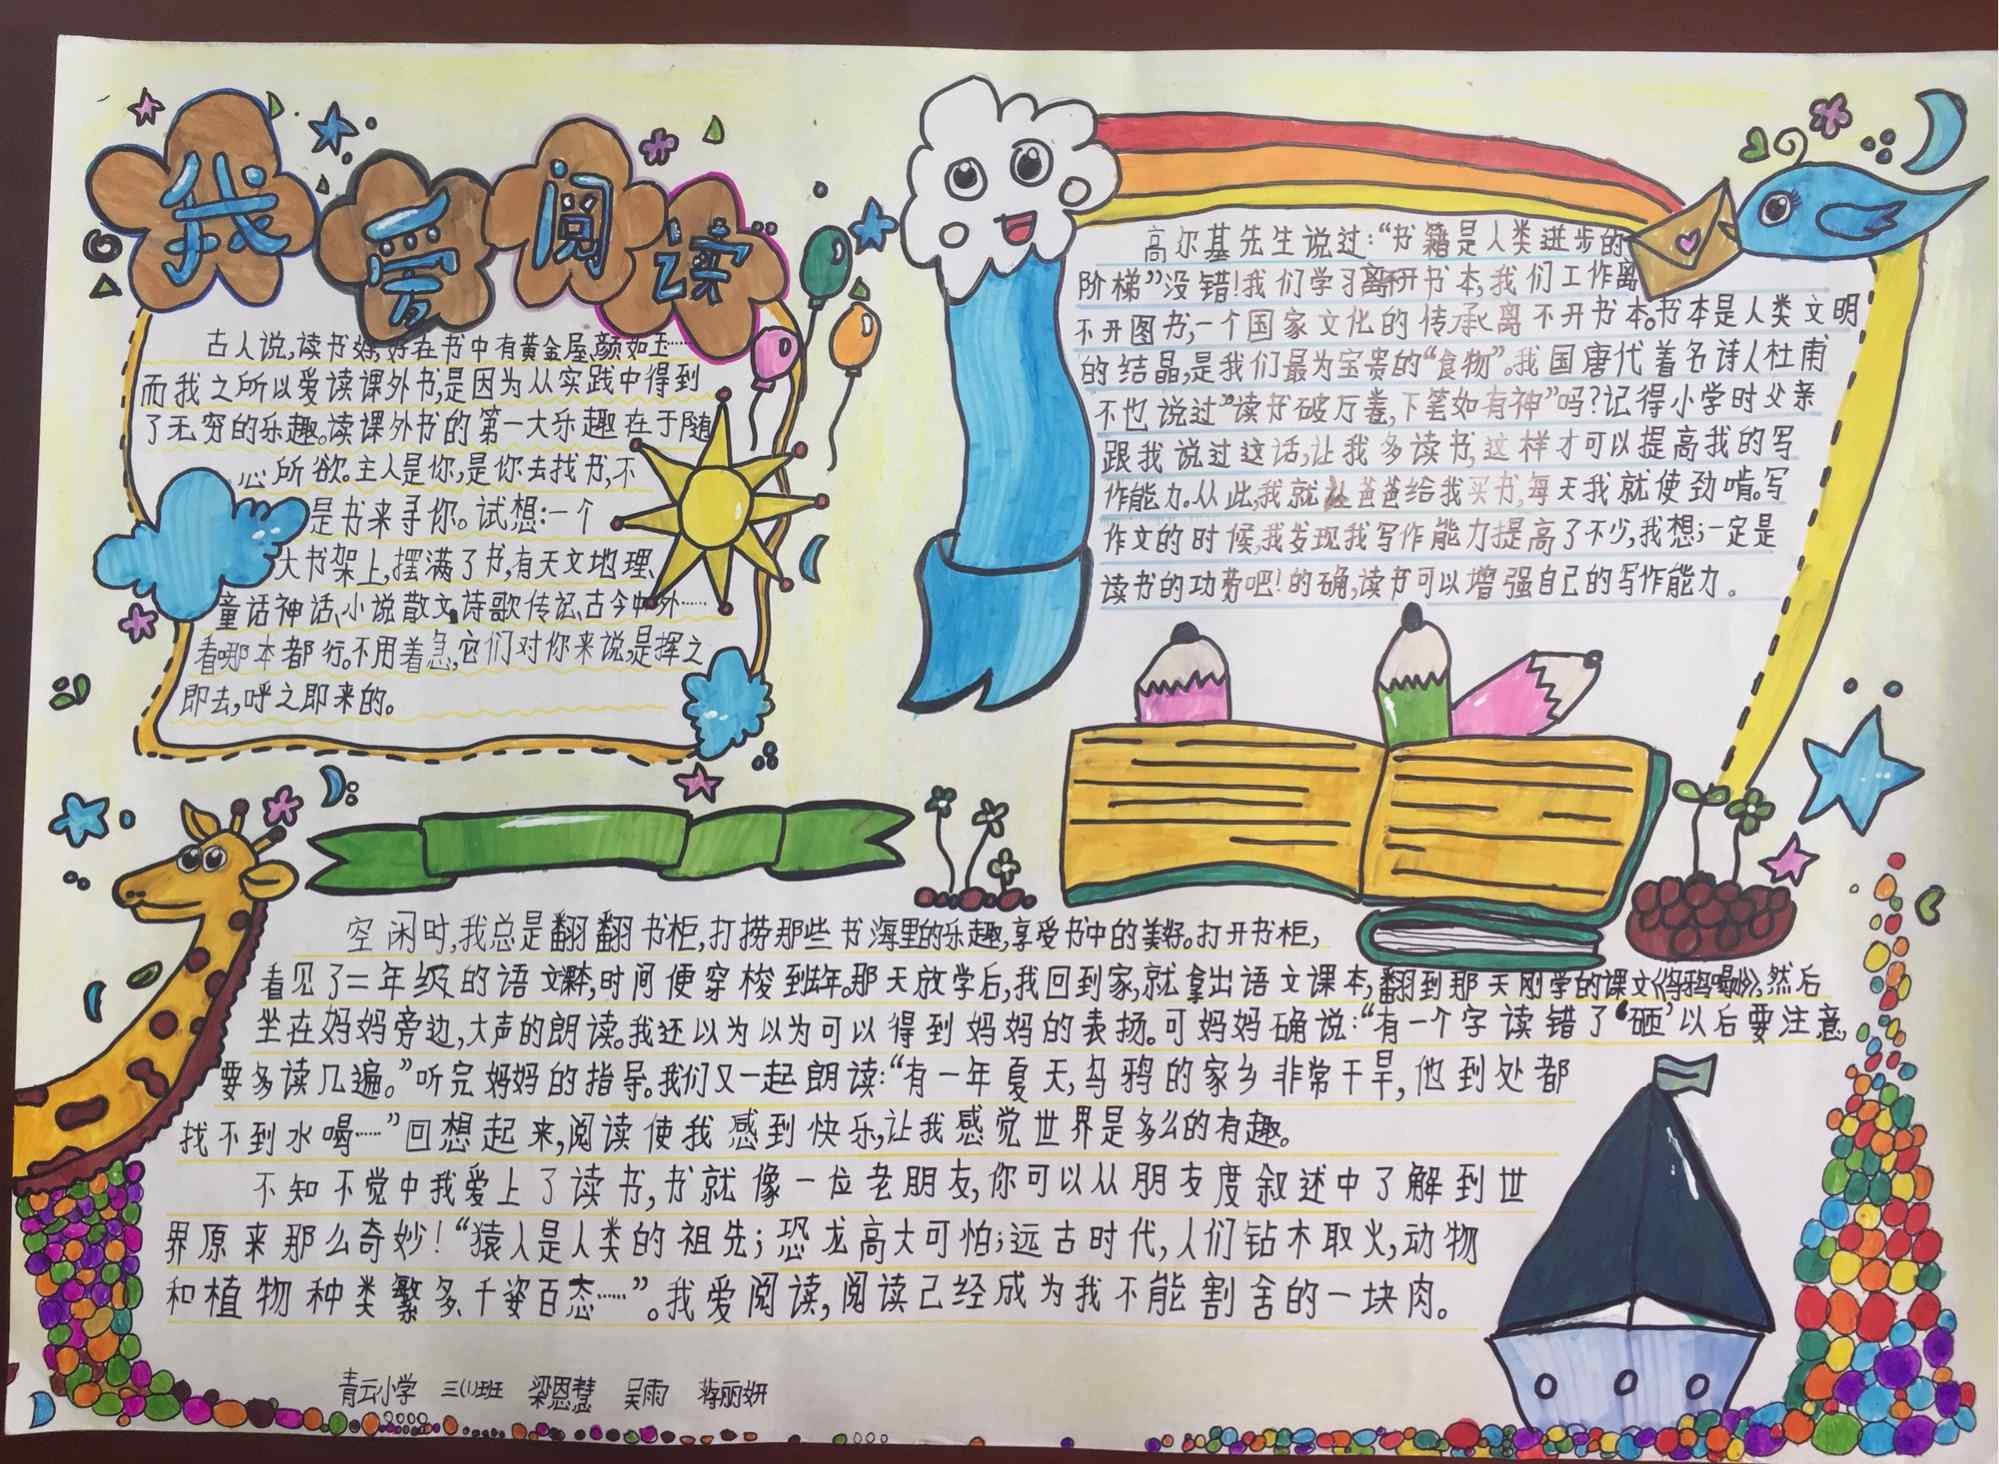 我爱阅读
古人说,读书好,好在书中有黄金屋、颜如玉……
而我之所以爱读课外书,是因为从实践中得到
了无穷的乐趣。读课外书的第一大乐趣在于随
心所欲。主人是你,是你去找书,不
是书来寻你。试想:一个
大书架上,摆满了书,有天文地理、
童话神话、小说散文、诗歌传记、古今中外……
看哪本都行。不用着急,它们对你来说,是挥之
即去,呼之即来的。
高尔基先生说过:“书籍是人类进步的
阶梯”没错!我们学习离不开书本,我们工作离
不开图书,一个国家文化的传承离不开书本。书本是人类文明
的结晶,是我们最为宝贵的“食物”。我国唐代着名诗人杜甫
不也说过”读书破万卷,下笔如有神”吗?记得小学时父亲
跟我说过这话,让我多读书,这样才可以提高我的写
作能力。从此,我就让爸爸给我买书,每天我就使劲啃。写
作文的时候,我发现我写作能力提高了不少,我想;一定是
读书的功劳吧!的确,读书可以增强自己的写作能力。
空闲时,我总是翻翻书柜,打捞那些书海里的乐趣,享受书中的美好。打开书柜,
看见了二年级的语文课本,时间便穿梭到去年。那天放学后,我回到家,就拿出语文课本,翻到那天刚学的课文《乌鸦喝水》,然后
坐在妈妈旁边,大声的朗读。我还以为以为可以得到妈妈的表扬。可妈妈确说:“有一个字读错了‘砸’以后要注意,
要多读几遍。”听完妈妈的指导。我们又一起朗读:“有一年夏天,乌鸦的家乡非常干旱,他到处都
找不到水喝……”回想起来,阅读使我感到快乐,让我感觉世界是多么的有趣。
不知不觉中我爱上了读书,书就像一位老朋友,你可以从朋友度叙述中了解到世
界原来那么奇妙!“猿人是人类的祖先;恐龙高大可怕;远古时代,人们钻木取火,动物
和植物种类繁多、千姿百态……”。我爱阅读,阅读己经成为我不能割舍的一块肉。
青云小学 三(1)班 梁恩慧 吴雨 蒋丽妍